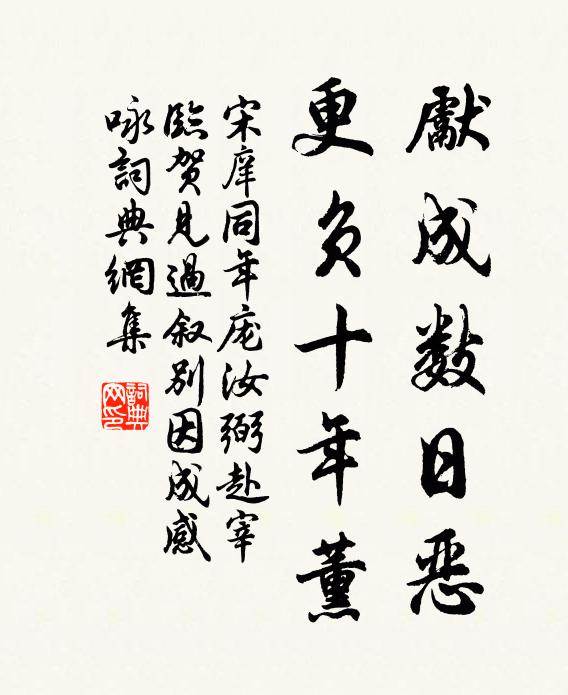 獻成数日恶
更负十年薰
宋庠同年庞汝弼赴宰
臨贺見過叙别因成感
咏詞典網集
詞典网印